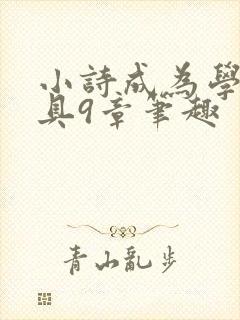 小詩成為學
具9章筆趣
青山亂步